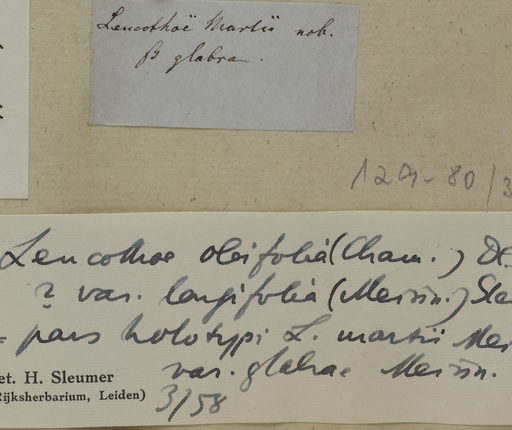 Leucothoë Martii nob.
β glabra.
129-80/3
Leucothoe oleifolia (Cham.) D
? var. longifolia (Meissn.) Sle
= pars holotypi L. martii Mei
var. glabrae Meissn.
et. H. Sleumer
Rijksherbarium, Leiden)
3/58